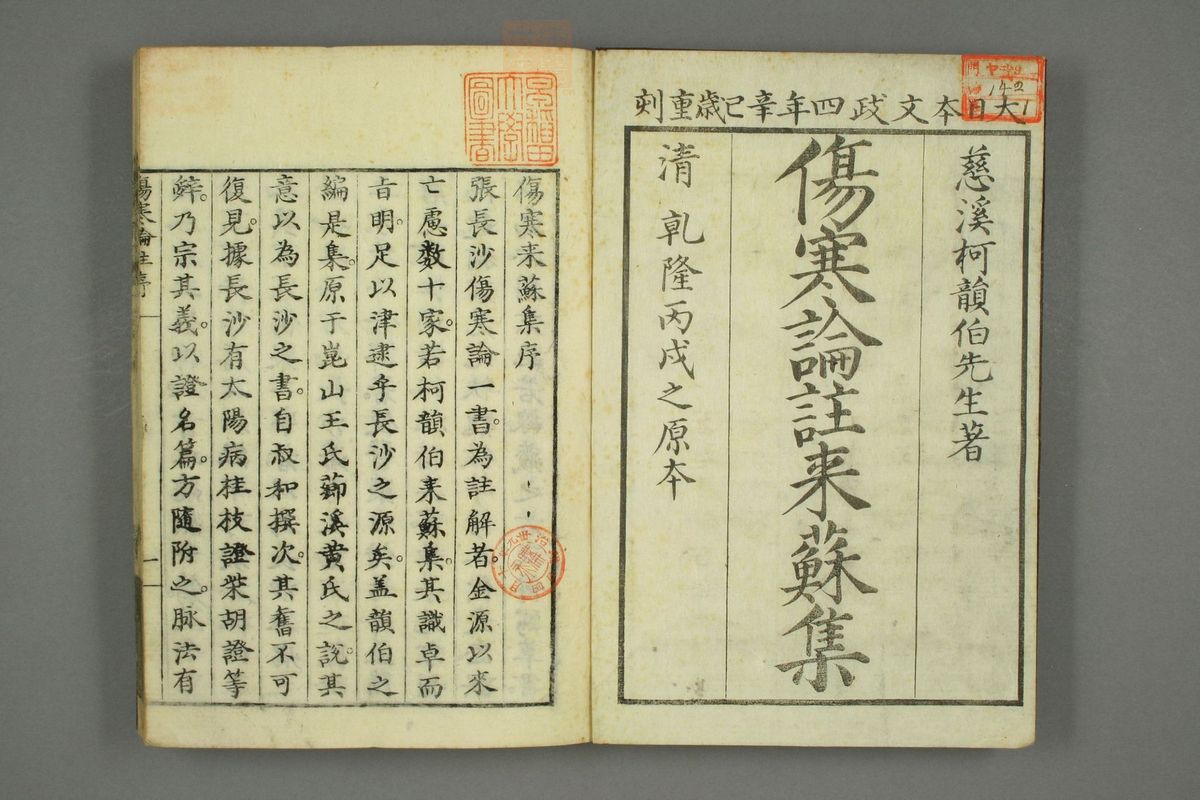 大日本文政四年辛巳歳重刻
慈溪柯韻伯先生著
傷寒論註来蘇集
清乾隆丙戌之原本
傷寒来蘇集序
張長沙傷寒論一書。為註解者。金源以來
亡慮数十家。若柯韻伯来蘇集。其識卓而
旨明。足以津逮乎長沙之源矣。盖韻伯之
編是集。原于崑山王氏薌溪黄氏之説。其
意以為長沙之書。自叔和撰次。其舊不可
復見。據長沙有太陽病桂枝證柴胡證等
辭。乃宗其義。以證名篇。方隨附之。脉法有
傷寒論註序
一
早稲田
大學
圖書
門
142